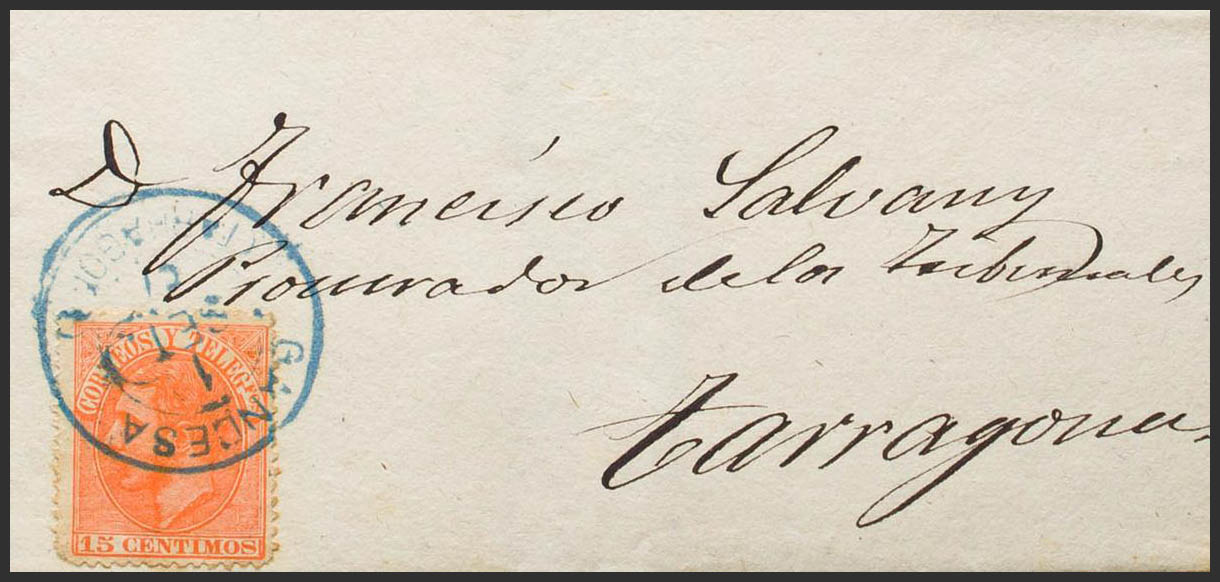 D Francisco Salvany
Procurador de los Tribunales
Tarragona
CORREOS Y TELEGFS
15 CENTIMOS
GANDESA
TARRAGONA